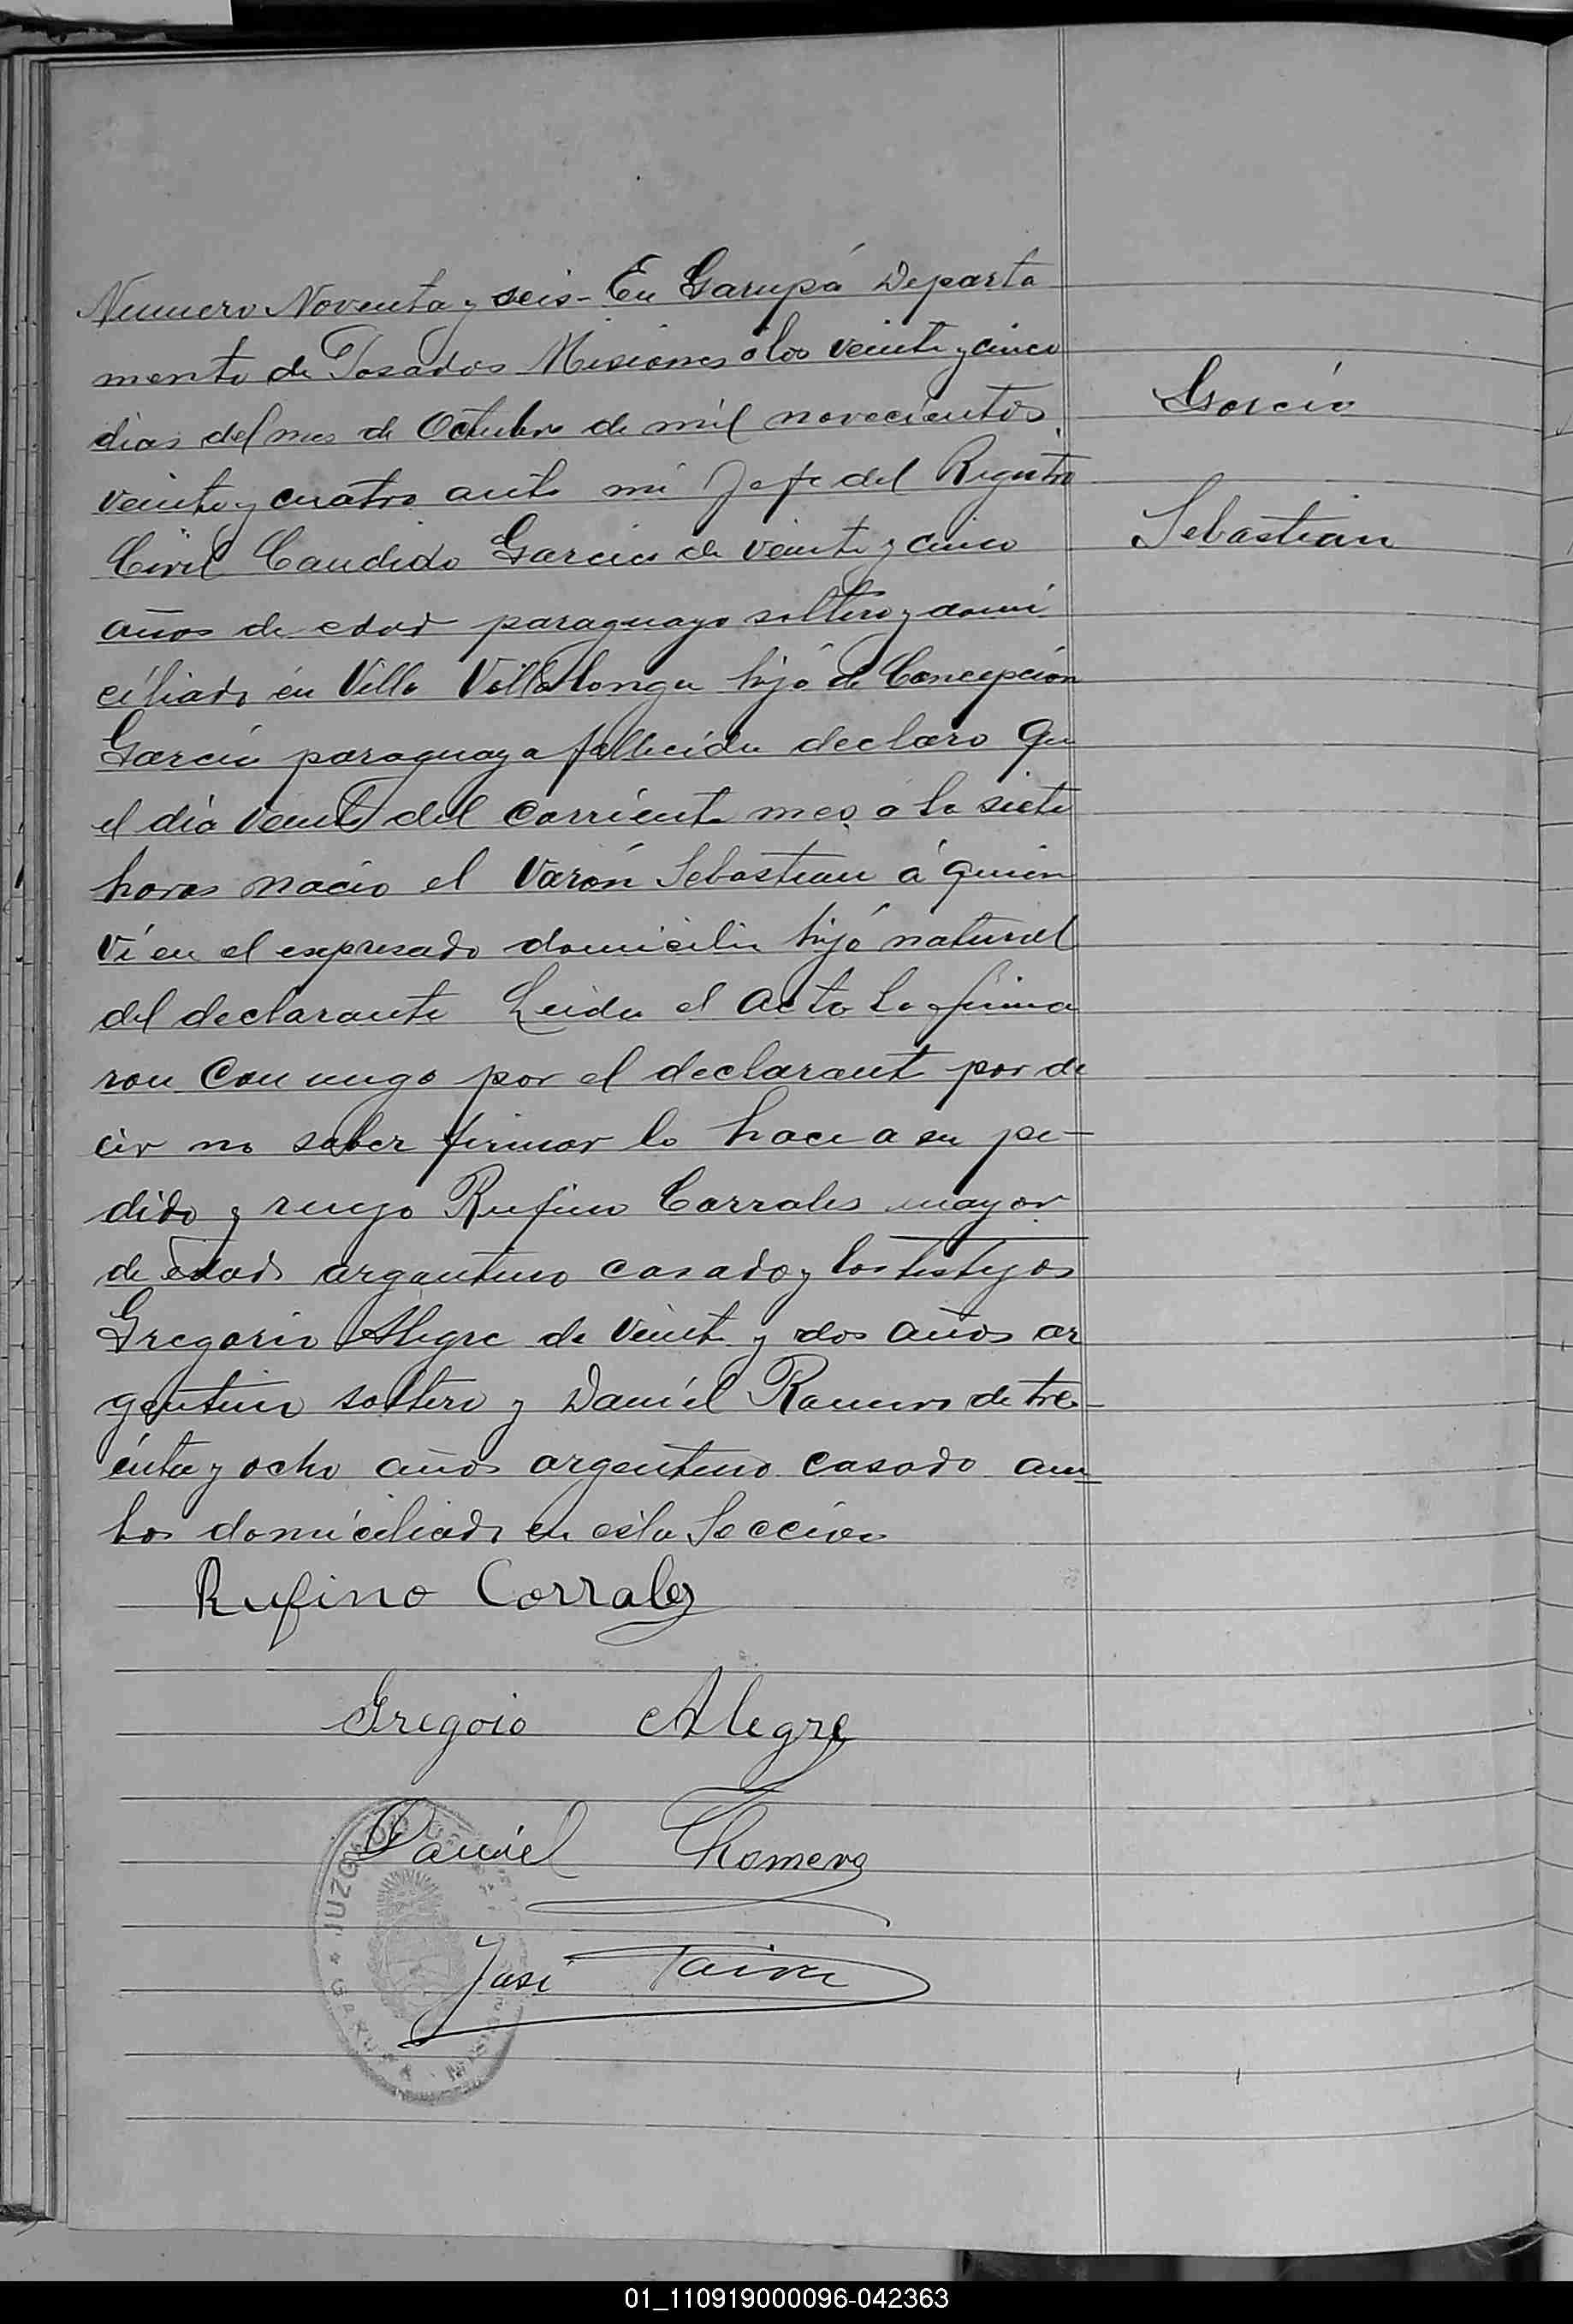 Numero Noventa y seis - En Garupá Departa
mento de Posadas Misiones á los veinte y cinco
dias del mes de Octubre de mil novecientos
veinte y cuatro ante mi Jefe del Registro
Civil Candido Garcia de veinte y cinco
años de edad paraguayo soltero y domi
ciliado en Villa Villalonga hijo de Concepción
Garcia paraguaya fallecida declaro que
el día veinte del corriente mes á la siete
horas nacio el varón Sebastian á quien
ví en el expresado domicilio hijo natural
del declarante Leida el acta la firma
ron con migo por el declarante por de
cir no saber firmar lo hace a su pe-
dido y ruego Rufino Corrales mayor
de edad argentino casado y los testigos
Gregorio Alegre de veinte y dos años ar
gentino soltero y Daniel Romero de tre-
inta y ocho años argentino casado am
bos domiciliados en esta Sección
Rufino Corrales
Gregoio Alegre
Daniel Romero
José
Garcia
Sebastian
JUZGADO
GARUPA
01_110919000096-042363